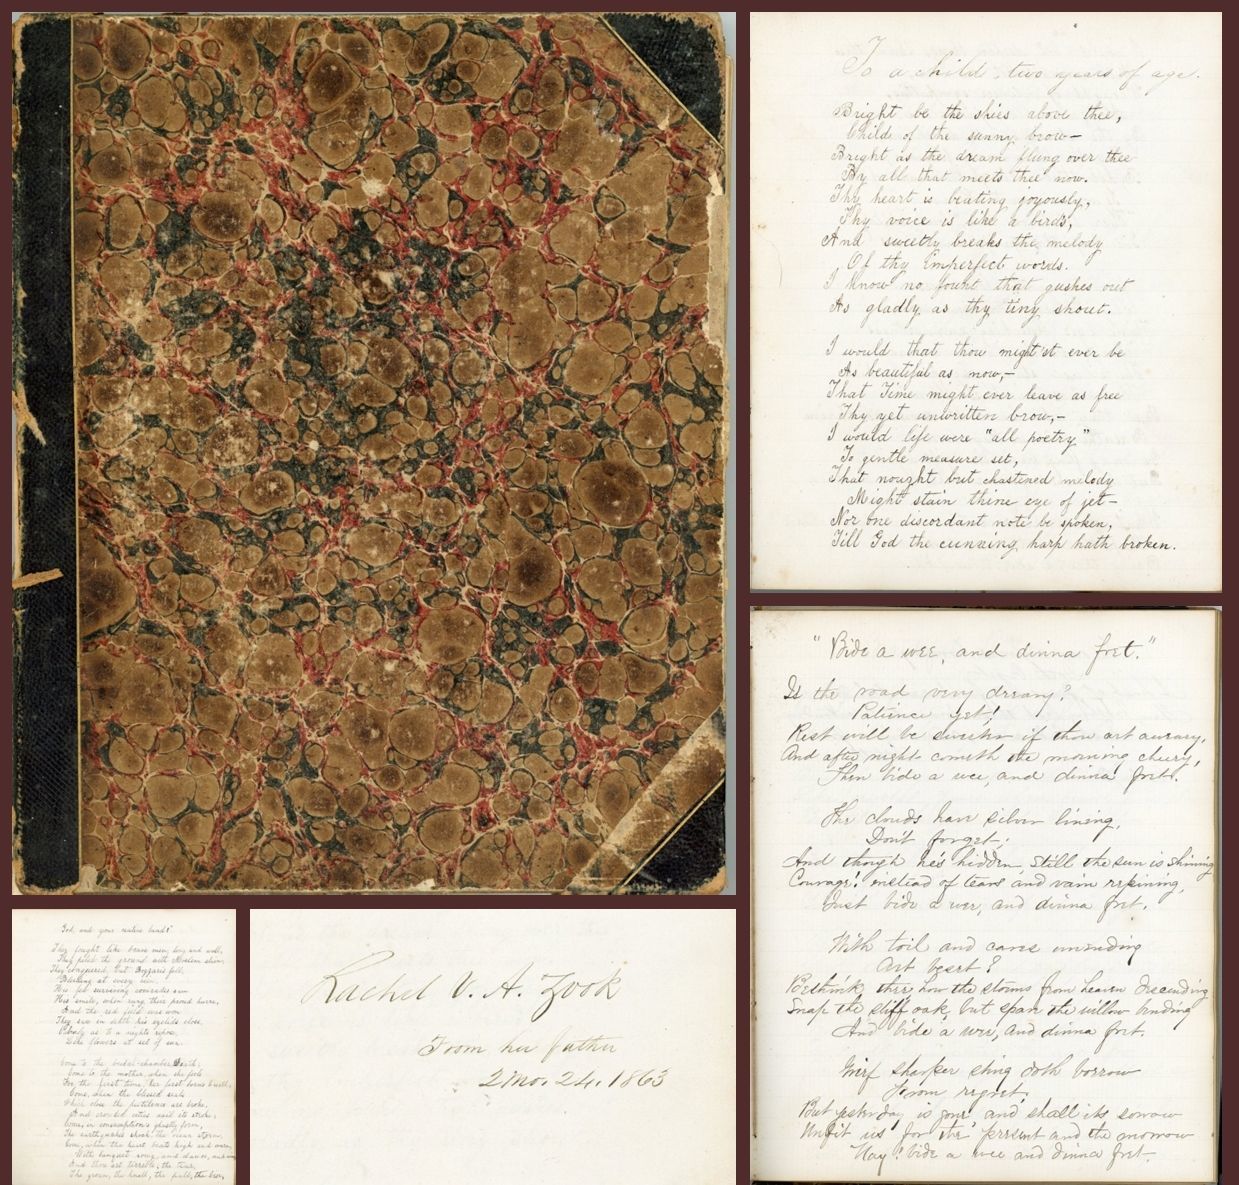 To a child, two years of age.
Bright be the skies above thee,
Child of the sunny brow—
Bright as the dream flung over thee
By all that meets thee now.
Thy heart is beating joyously,
Thy voice is like a bird's,
And sweetly breaks the melody
Of thy imperfect words.
I know no fount that gushes out
As gladly as thy tiny shout.
I would that thou might'st ever be
As beautiful as now,—
That Time might ever leave as free
Thy yet unwritten brow,—
I would life were "all poetry"
To gentle measure set,
That nought but chastened melody
Might stain thine eye of jet—
Nor one discordant note be spoken,
Till God the cunning harp hath broken.
"Bide a wee, and dinna fret."
Is the road very dreary?
Patience yet!
Rest will be sweeter if thou art aweary,
And after night cometh the morning cheery,
Then bide a wee, and dinna fret.
The clouds have silver lining,
Don't forget;
And though he's hidden, still the sun is shining
Courage! instead of tears and vain repining,
Just bide a wee, and dinna fret.
With toil and cares unending
Art beset?
Bethink thee how the storms from heaven descending
Snap the stiff oak, but spare the willow bending
And bide a wee, and dinna fret.
Grief sharper sting doth borrow
From regret,
But yesterday is gone and shall its sorrow
Unfit us for the present and the morrow
Nay! bide a wee and dinna fret.
God and your native land!"
They fought like brave men, long and well,
They piled the ground with Moslem slain,
They conquered, but Bozzaris fell,
Bleeding at every vein.
His few surviving comrades saw
His smile, when rang their proud hurra,
And the red field was won
They saw in death his eyelids close,
Calmly as to a night's repose,
Like flowers at set of sun.
Come to the bridal-chamber Death;
Come to the mother, when she feels
For the first time, her first born's breath,
Come, when the blessed seals
Which close the pestilence are broke,
And crowded cities wail its stroke;
Come, in consumption's ghastly form,
The earthquake's shock, the ocean storm,
Come, when the heart beats high and warm,
With banquet song, and dance, and
And thou art terrible; the tear,
The groan, the knell, the pall, the bier,
Rachel V. A. Zook
From her father
2 mo. 24. 1863